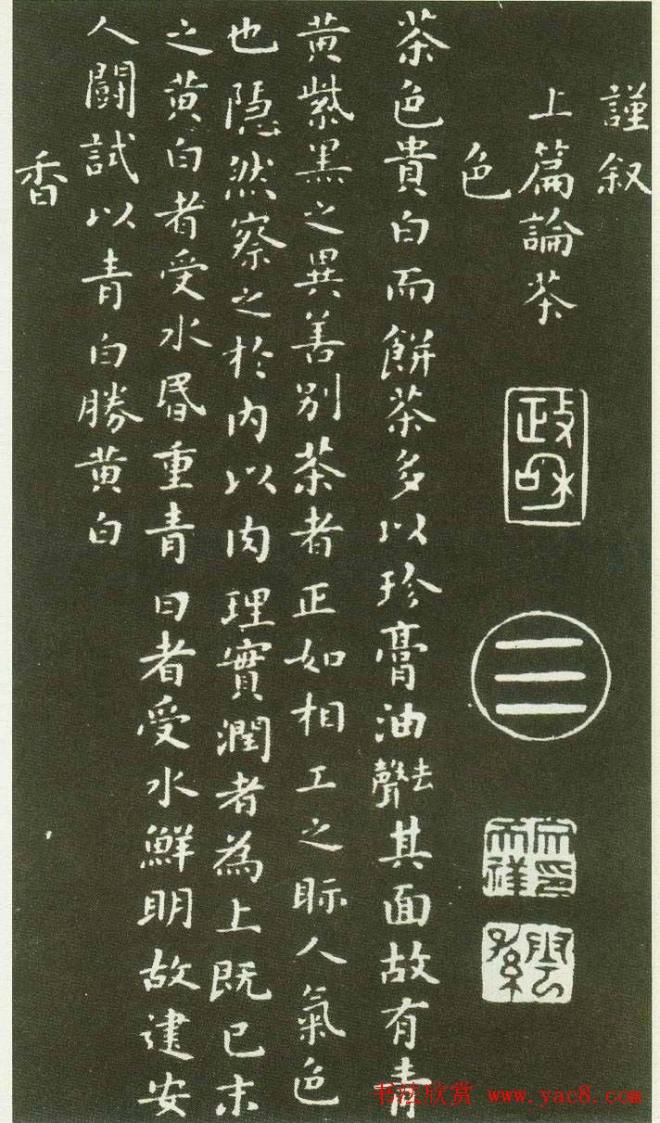 謹叙
上篇論茶
政和
色
茶色貴白而餅茶多以珍膏油去聲其面故有青
黄紫黑之異善别茶者正如相工之眎人氣色
也隠然察之於内以肉理實潤者為上既已末
之黄白者受水昬重青曰者受水鮮明故建安
人鬪試以青白勝黄白
香
书法欣赏 www.yac8.com